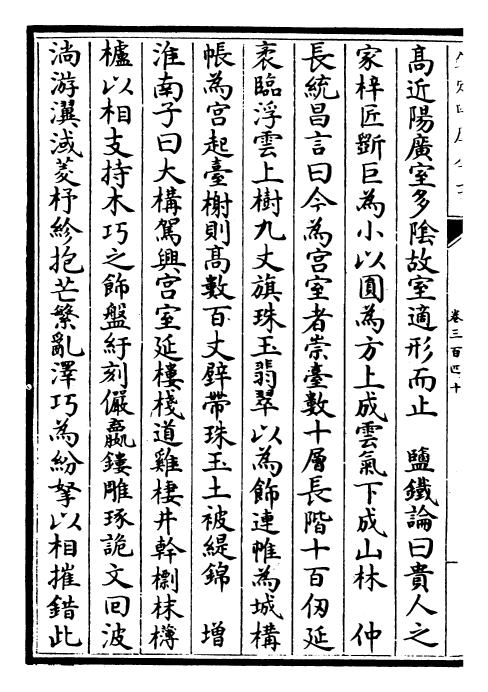 高近陽廣室多陰故室適形而止　鹽鐵論曰貴人之
家梓匠斲巨為小以圓為方上成雲氣下成山林　仲
長統昌言曰今為宫室者崇臺數十層長階十百仞延
袤臨浮雲上樹九丈旗珠玉翡翠以為飾連帷為城構
帳為宫起臺榭則高數百丈壁帶珠玉土被緹錦　增
淮南子曰大構駕興宫室延樓棧道雞棲井幹檦枺欂
櫨以相支持木巧之飾盤紆刻儼嬴鏤雕琢詭文回波
淌游瀷淢菱杼紾抱芒繁亂澤巧為紛挐以相摧錯此
卷三百四十